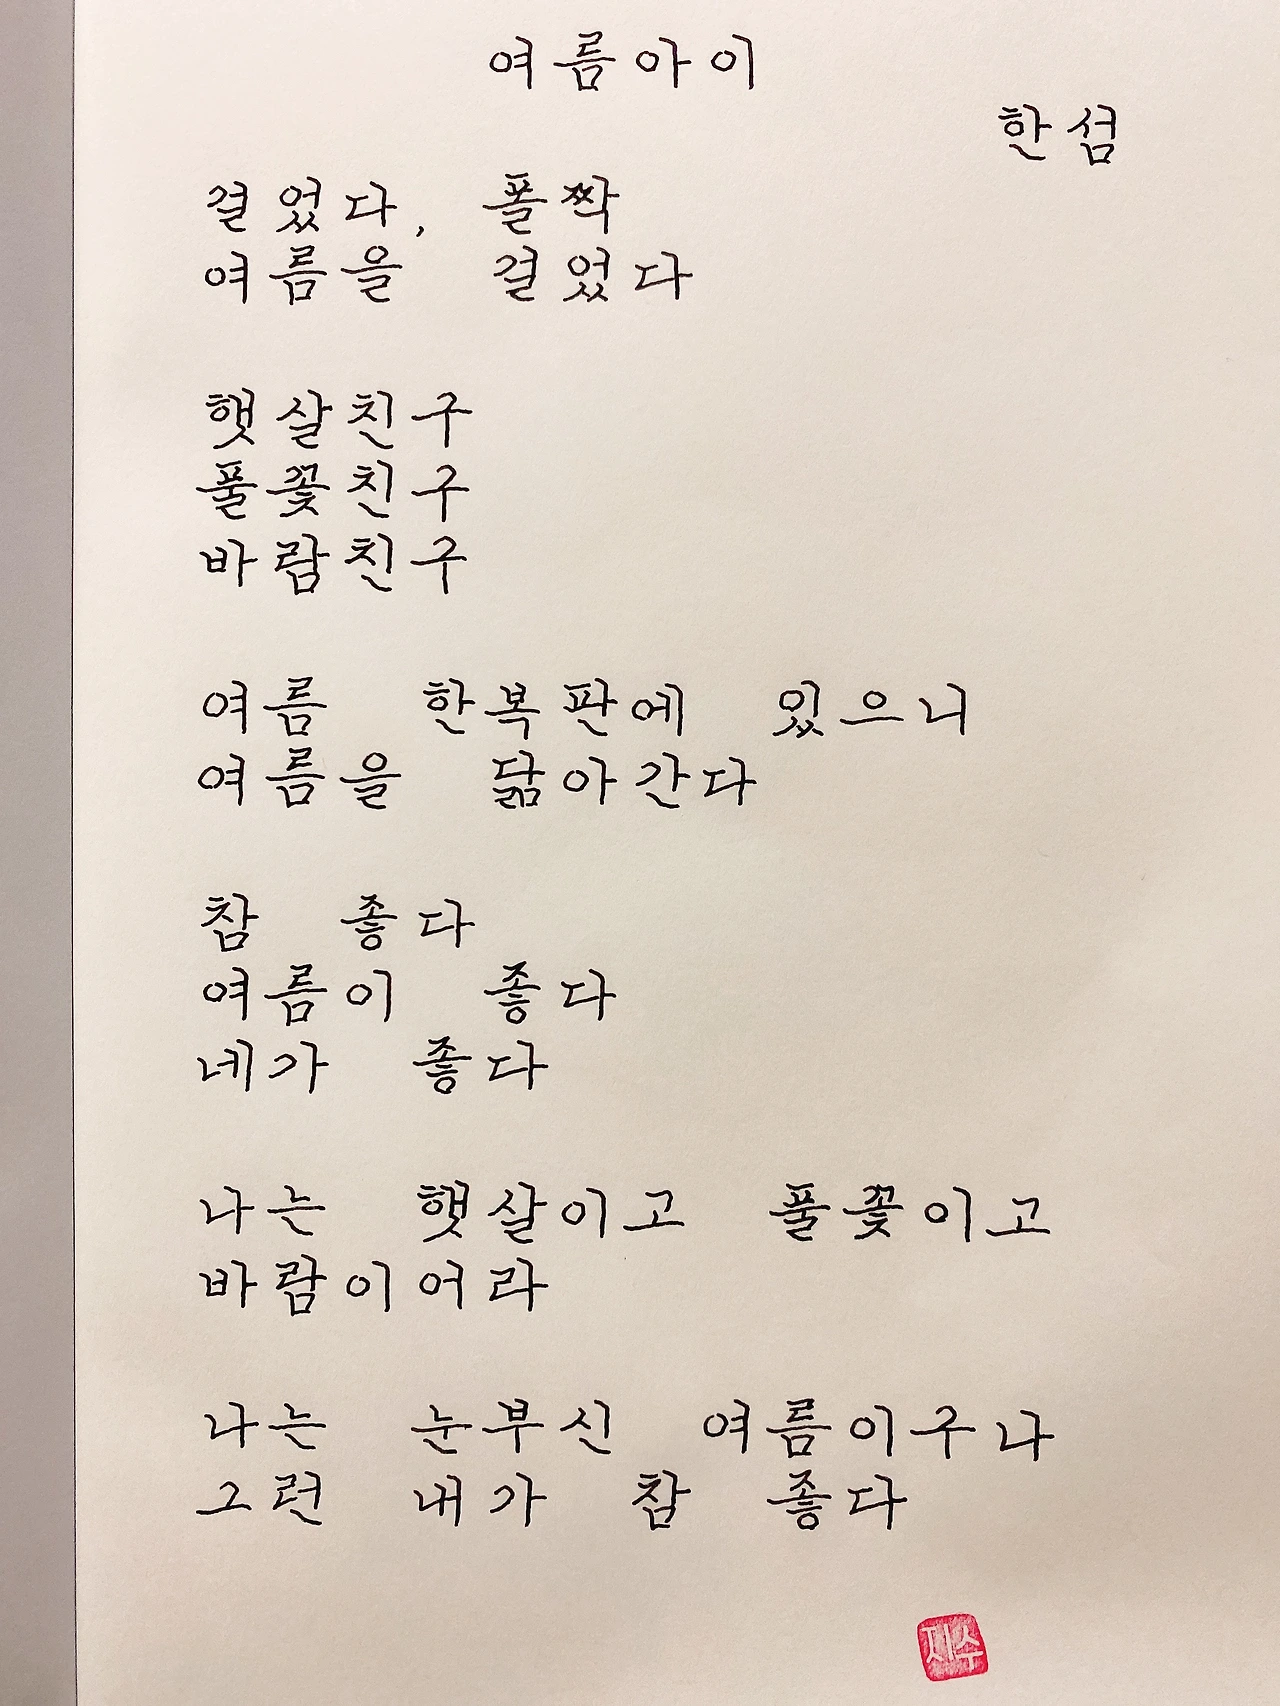 여름아이
한섬
걸었다, 폴짝
여름을 걸었다
햇살친구
풀꽃친구
바람친구
여름 한복판에 있으니
여름을 닮아간다
참 좋다
여름이 좋다
네가 좋다
나는 햇살이고 풀꽃이고
바람이어라
나는 눈부신 여름이구나
그런 내가 참 좋다
제수